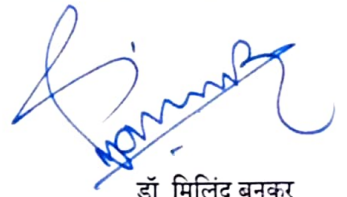 डॉ. मिलिंद बनकर